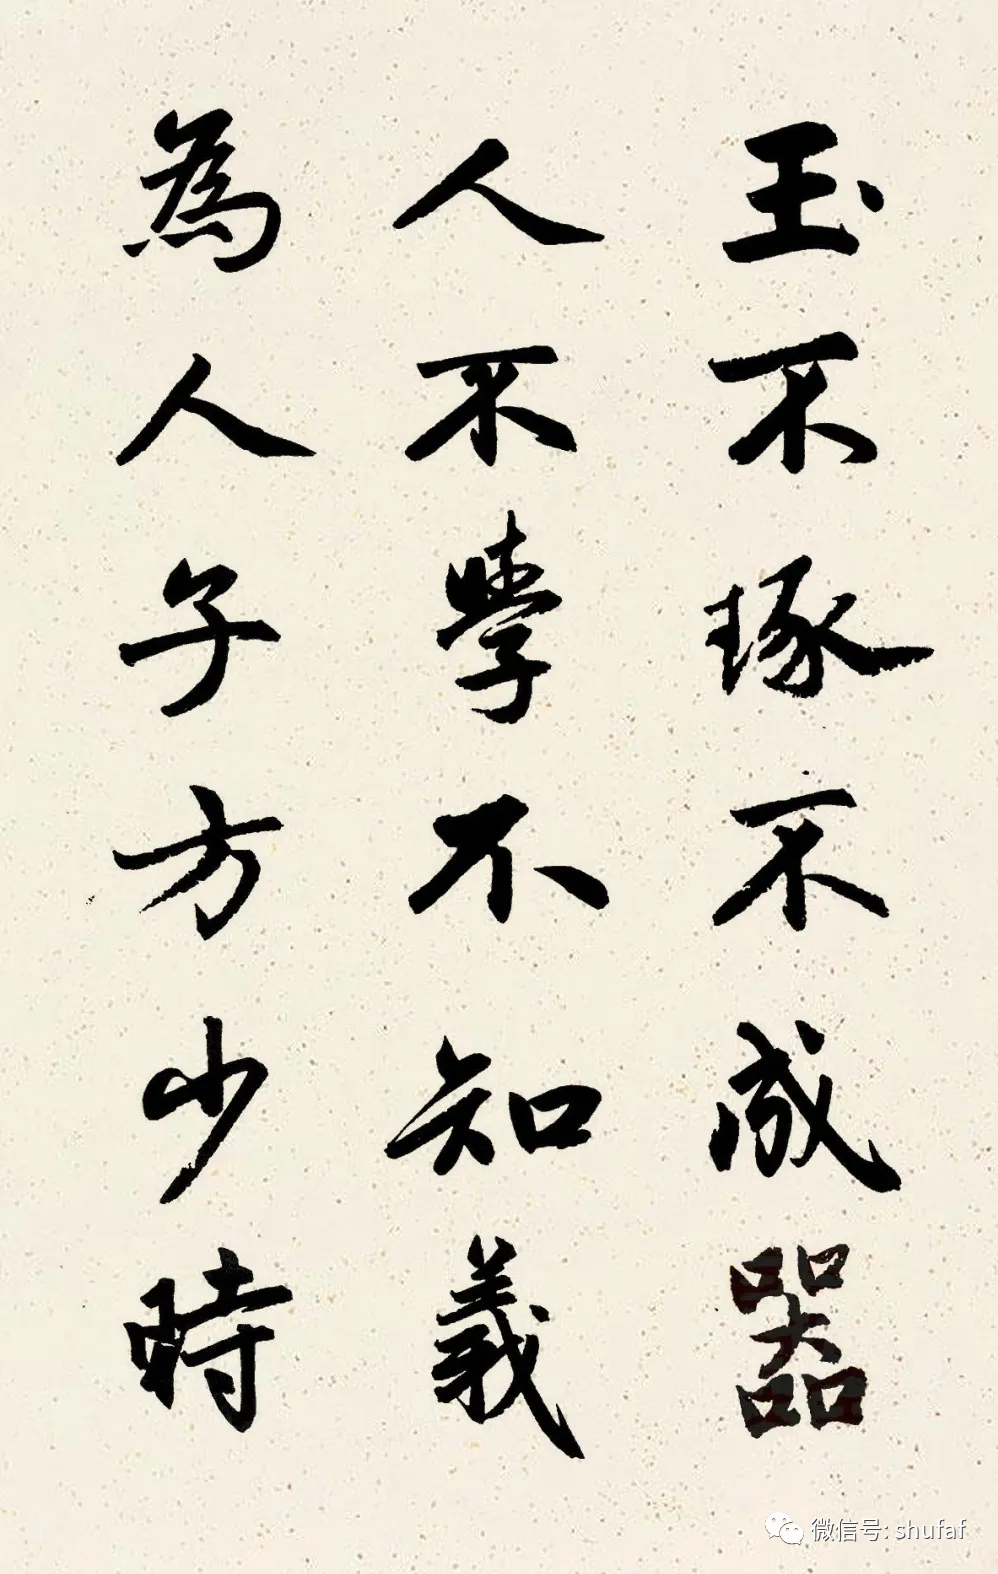 玉不琢不成器
人不學不知義
為人子方少時
微信号: shufaf